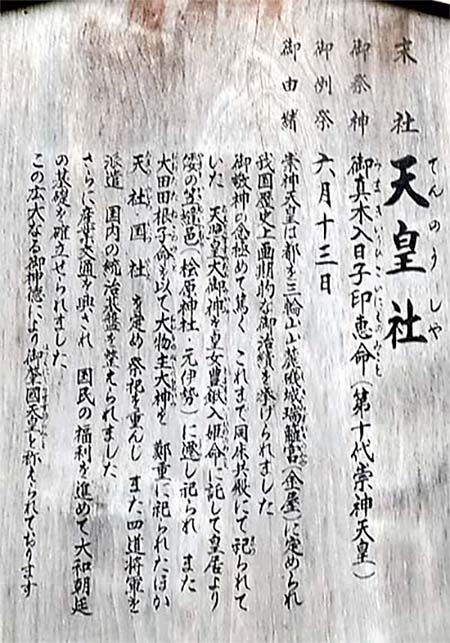 末社 天皇社
てんのうしや
御祭神 御真木入日子印恵命(第十代崇神天皇)
御例祭 六月十三日
御由緒 崇神天皇は都を三輪山山麓磯城瑞籬宮(金屋)に定められ
我国歴史上画期的な御治績を挙げられました
御敬神の念極めて篤く これまで同床共殿にて祀られて
いた 天照皇大御神を皇女豊鍬入姫命に託して皇居より
倭の笠縫邑(桧原神社・元伊勢)に遷し祀られ また
大田田根子命を以て大物主大神を 鄭重に祀られたほか
天社・国社を定め祭祀を重んじ また四道将軍を
派遣 国内の統治基盤を整えられました
さらに産業交通を興され 国民の福利を進めて大和朝廷
の基礎を確立せられました
この広大なる御神徳により御肇國天皇と称えられております